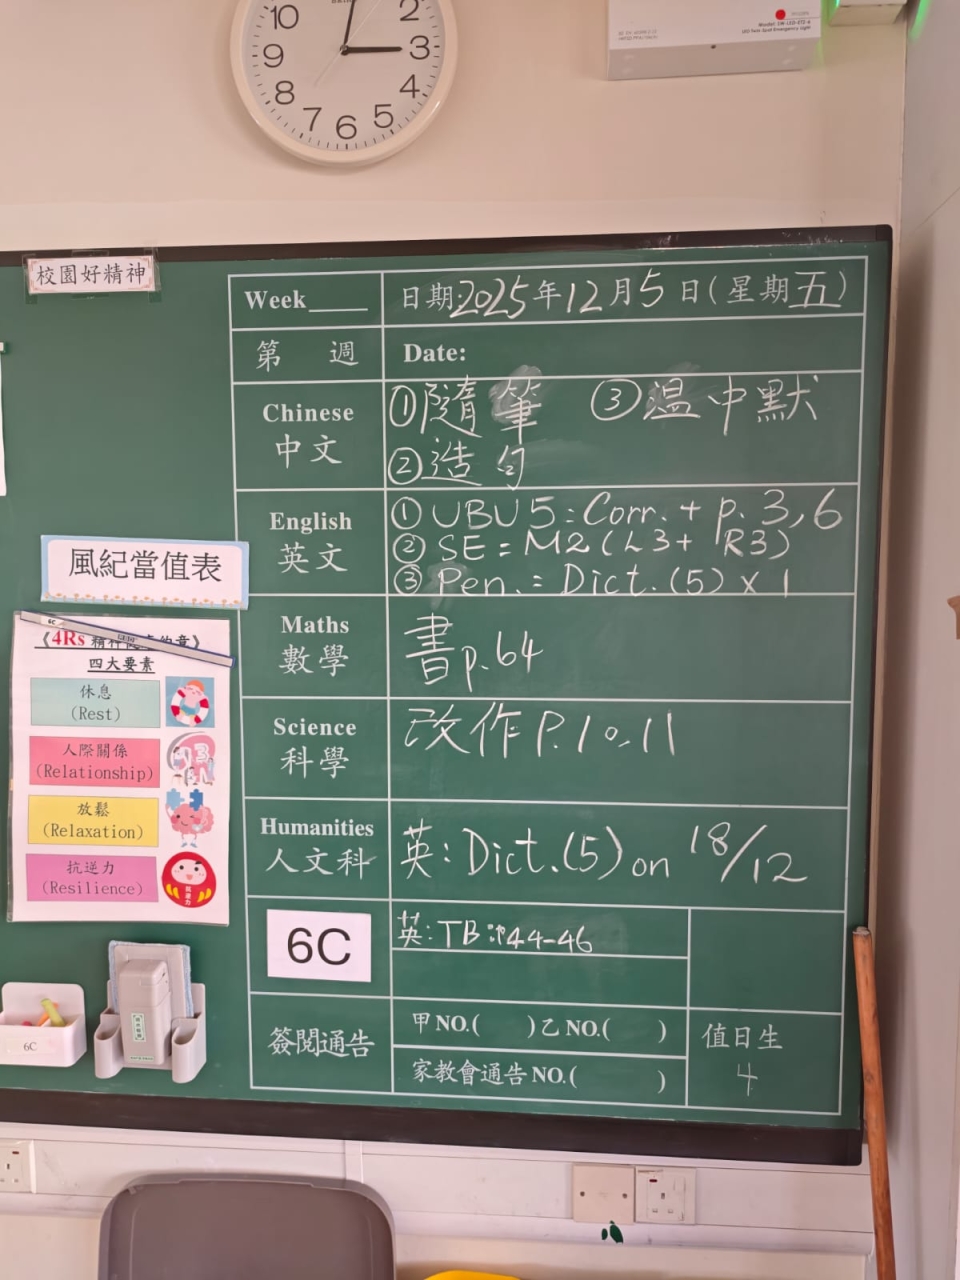 10
2
9
3
8
4
7
6
5
校園好精神
Week____ 日期:2025年12月5日(星期五)
第 週 Date:
Chinese 中文 ①隨筆 ③溫中默
②造句
English 英文 ① UBU5:Corr. + p. 3, 6
② SE = M2 (L3 + R3)
③ Pen. = Dict. (5) x 1
Maths 數學 書p.64
Science 科學 改作P.10,11
Humanities 人文科 英:Dict.(5) on 18/12
6C 英:TB:P44-46
簽閱通告 甲NO.( )乙NO.( )
家教會通告NO.( )
值日生
4
風紀當值表
6C
《4Rs 精神健康約章》
四大要素
休息
(Rest)
人際關係
(Relationship)
放鬆
(Relaxation)
抗逆力
(Resilience)
6C